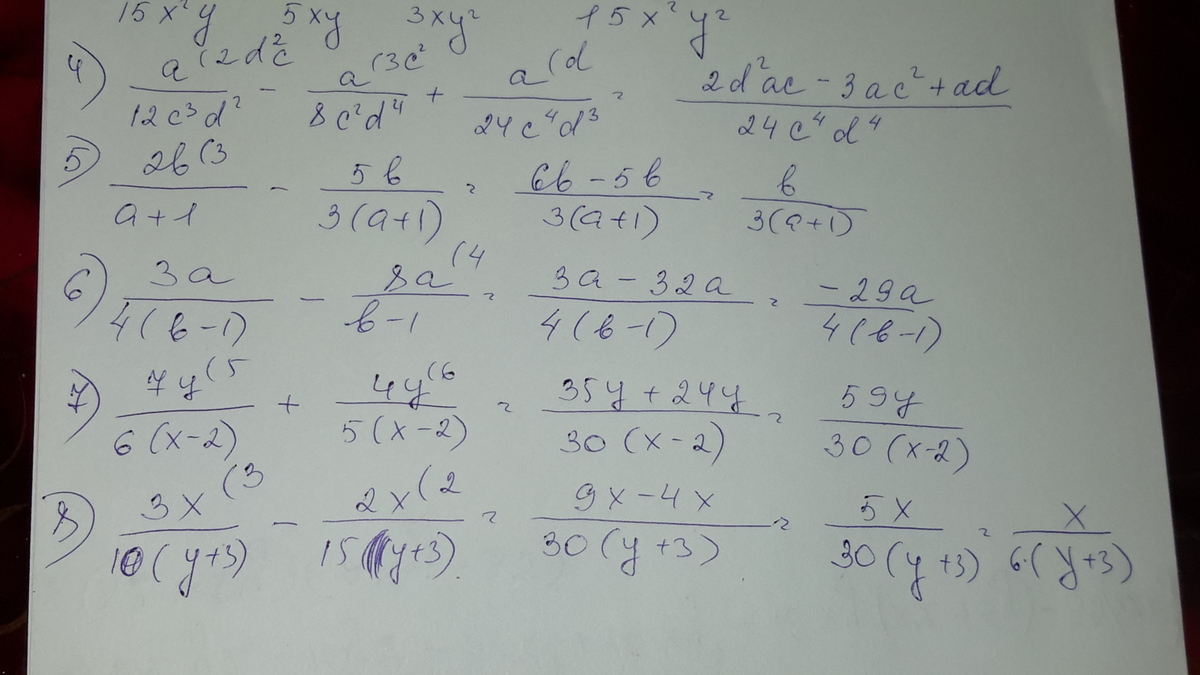 15x²y 5xy 3xy² 15x²y²
4) a(2d²c / 12c³d² - a(3c² / 8c²d⁴ + a(d / 24c⁴d³ = 2d²ac - 3ac² + ad / 24c⁴d⁴
5) 2b(3 / a+1 - 5b / 3(a+1) = 6b - 5b / 3(a+1) = b / 3(a+1)
6) 3a / 4(b-1) - 8a(4 / b-1 = 3a - 32a / 4(b-1) = -29a / 4(b-1)
7) 7y(5 / 6(x-2) + 4y(6 / 5(x-2) = 35y + 24y / 30(x-2) = 59y / 30(x-2)
8) 3x(3 / 10(y+3) - 2x(2 / 15(y+3) = 9x - 4x / 30(y+3) = 5x / 30(y+3) = x / 6·(y+3)